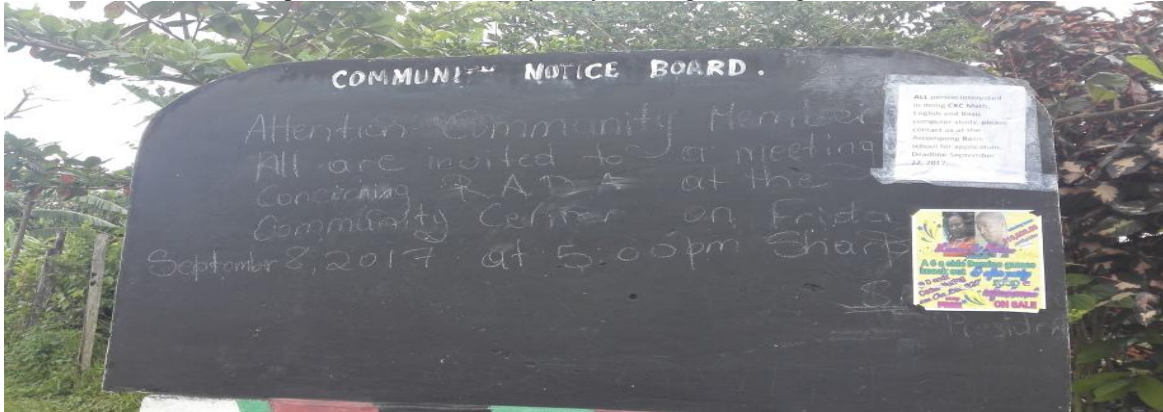 COMMUNI NOTICE BOARD.
Attention Community Member
All are invited to a meeting
Concerning R.A.D.A at the
Community Center on Frida
September 8, 2017 at 5.00pm Sharp
President
ALL person interested
in doing CXC Math,
English and Basic
computer study, please
contact us at the
Accompong Basic
school for application.
Deadline September
22, 2017.
A 6 a side Domino games
knock out
ON SALE